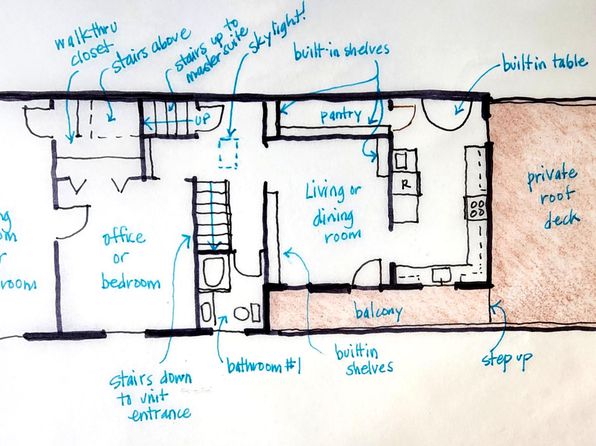 walkthru
closet
stairs above
stairs up to
master suite
skylight!
built-in shelves
built in table
UP
pantry
R
Living or
dining
room
private
roof
deck
office
or
bedroom
or
room
balcony
bathroom #1
builtin
shelves
step up
stairs down
to unit
entrance